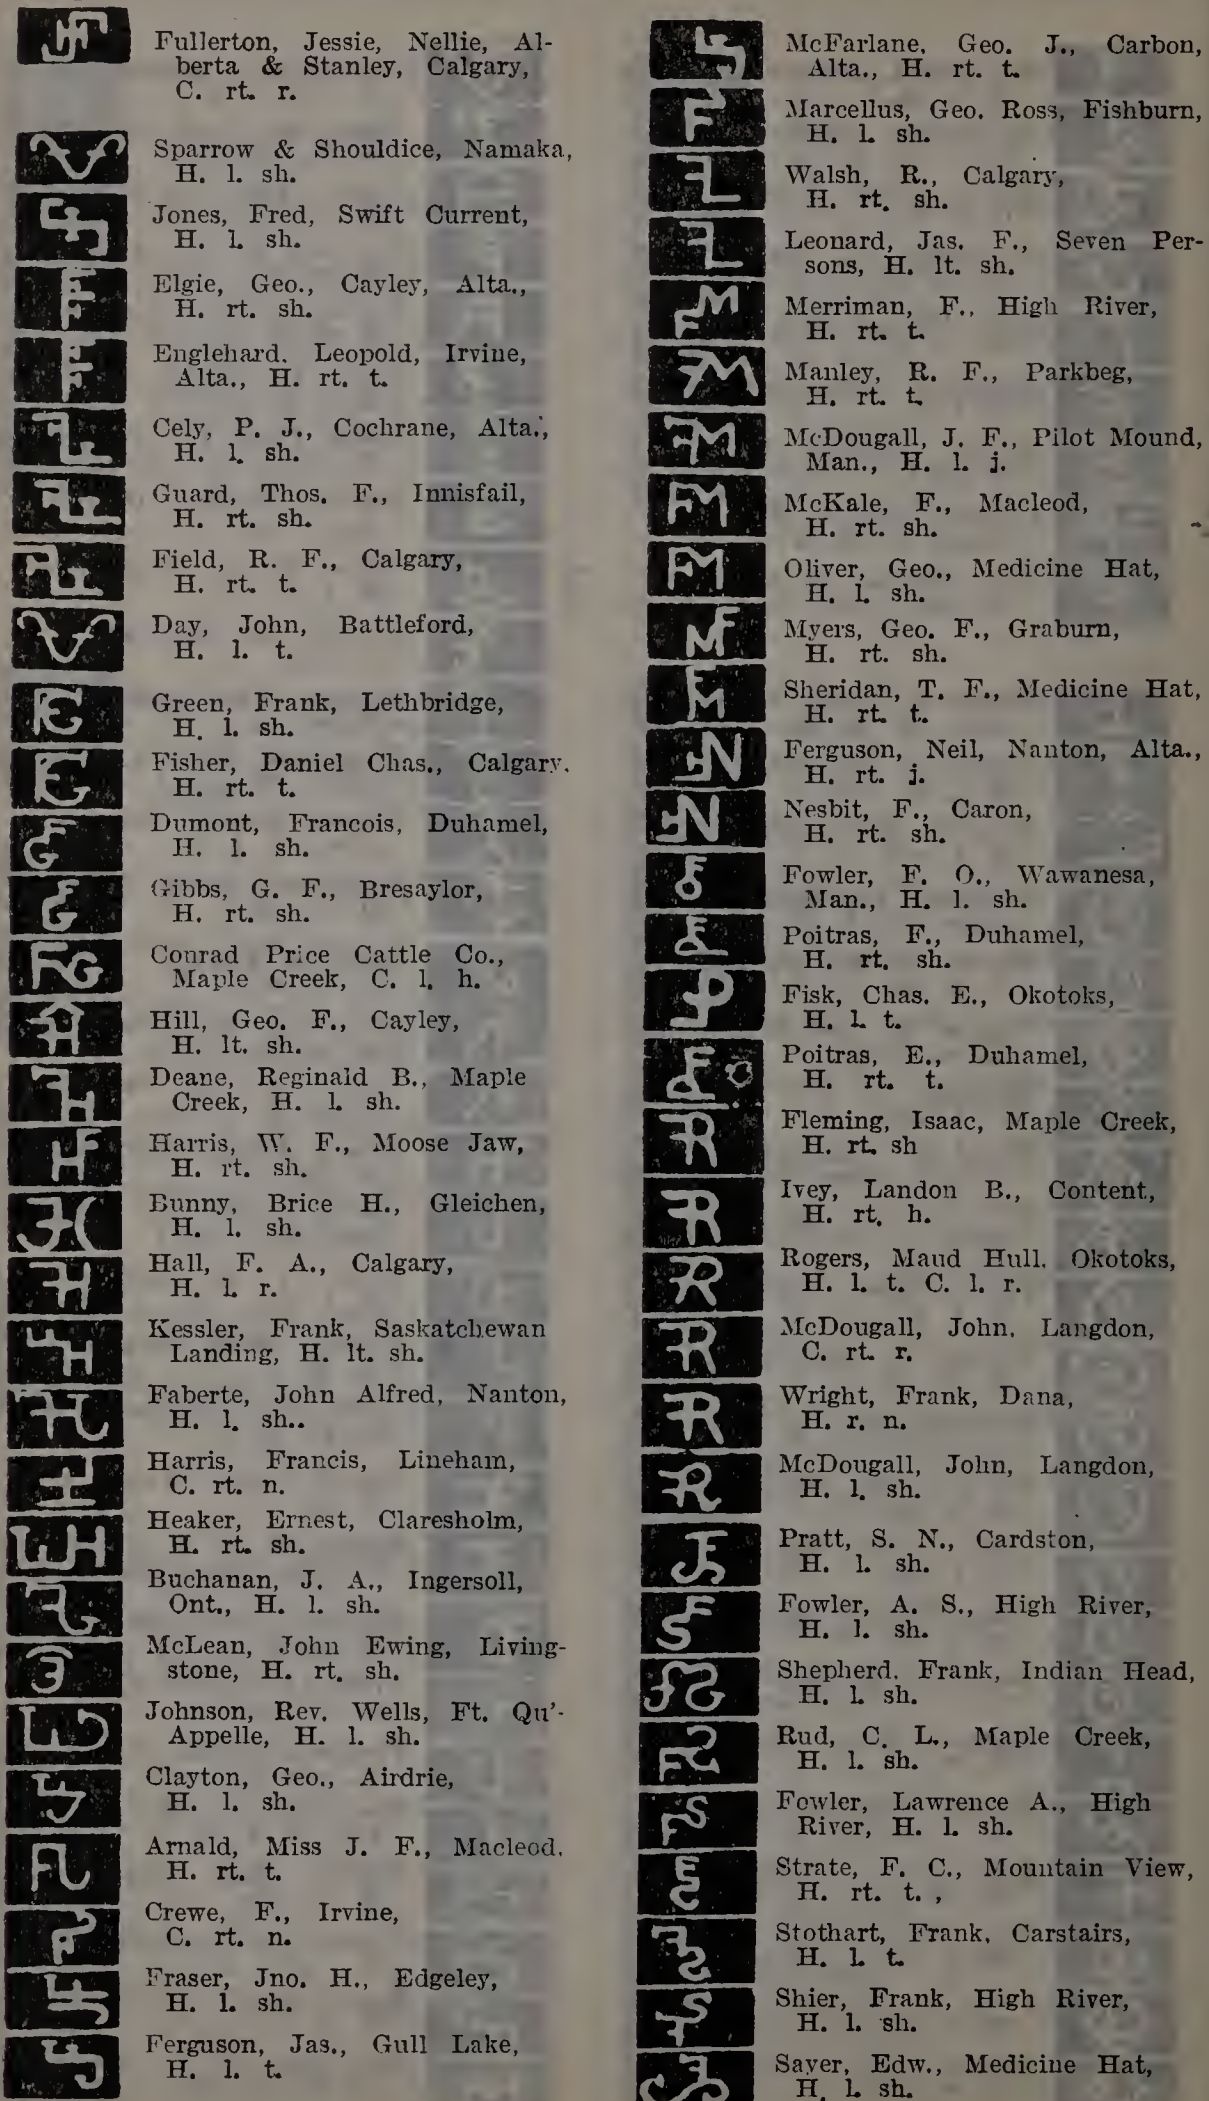 Fullerton, Jessie, Nellie, Al-
berta & Stanley, Calgary,
C. rt. r.
Sparrow & Shouldice, Namaka,
H. l. sh.
Jones, Fred, Swift Current,
H. l. sh.
Elgie, Geo., Cayley, Alta.,
H. rt. sh.
Englehard. Leopold, Irvine,
Alta., H. rt. t.
Cely, P. J., Cochrane, Alta.,
H. l. sh.
Guard, Thos. F., Innisfail,
H. rt. sh.
Field, R. F., Calgary,
H. rt. t.
Day, John, Battleford,
H. l. t.
Green, Frank, Lethbridge,
H. l. sh.
Fisher, Daniel Chas., Calgary.
H. rt. t.
Dumont, Francois, Duhamel,
H. l. sh.
Gibbs, G. F., Bresaylor,
H. rt. sh.
Conrad Price Cattle Co.,
Maple Creek, C. l. h.
Hill, Geo. F., Cayley,
H. lt. sh.
Deane, Reginald B., Maple
Creek, H. l. sh.
Harris, W. F., Moose Jaw,
H. rt. sh.
Bunny, Brice H., Gleichen,
H. l. sh.
Hall, F. A., Calgary,
H. l. r.
Kessler, Frank, Saskatchewan
Landing, H. lt. sh.
Faberte, John Alfred, Nanton,
H. l. sh..
Harris, Francis, Lineham,
C. rt. n.
Heaker, Ernest, Claresholm,
H. rt. sh.
Buchanan, J. A., Ingersoll,
Ont., H. l. sh.
McLean, John Ewing, Living-
stone, H. rt. sh.
Johnson, Rev. Wells, Ft. Qu'-
Appelle, H. l. sh.
Clayton, Geo., Airdrie,
H. l. sh.
Arnald, Miss J. F., Macleod.
H. rt. t.
Crewe, F., Irvine,
C. rt. n.
Fraser, Jno. H., Edgeley,
H. l. sh.
Ferguson, Jas., Gull Lake,
H. l. t.
McFarlane. Geo. J., Carbon,
Alta., H. rt. t.
Marcellus, Geo. Ross, Fishburn,
H. l. sh.
Walsh, R., Calgary,
H. rt. sh.
Leonard, Jas. F., Seven Per-
sons, H. lt. sh.
Merriman, F., High River,
H. rt. t.
Manley, R. F., Parkbeg,
H. rt. t.
McDougall, J. F., Pilot Mound,
Man., H. l. j.
McKale, F., Macleod,
H. rt. sh.
Oliver, Geo., Medicine Hat,
H. l. sh.
Myers, Geo. F., Graburn,
H. rt. sh.
Sheridan, T. F., Medicine Hat,
H. rt. t.
Ferguson, Neil, Nanton, Alta.,
H. rt. j.
Nesbit, F., Caron,
H. rt. sh.
Fowler, F. O., Wawanesa,
Man., H. l. sh.
Poitras, F., Duhamel,
H. rt. sh.
Fisk, Chas. E., Okotoks,
H. l. t.
Poitras, E., Duhamel,
H. rt. t.
Fleming, Isaac, Maple Creek,
H. rt. sh
Ivey, Landon B., Content,
H. rt. h.
Rogers, Maud Hull. Okotoks,
H. l. t. C. l. r.
McDougall, John. Langdon,
C. rt. r.
Wright, Frank, Dana,
H. r. n.
McDougall, John, Langdon,
H. l. sh.
Pratt, S. N., Cardston,
H. l. sh.
Fowler, A. S., High River,
H. l. sh.
Shepherd. Frank, Indian Head,
H. l. sh.
Rud, C. L., Maple Creek,
H. l. sh.
Fowler, Lawrence A., High
River, H. l. sh.
Strate, F. C., Mountain View,
H. rt. t. ,
Stothart, Frank, Carstairs,
H. l. t.
Shier, Frank, High River,
H. l. sh.
Sayer, Edw., Medicine Hat,
H. l. sh.